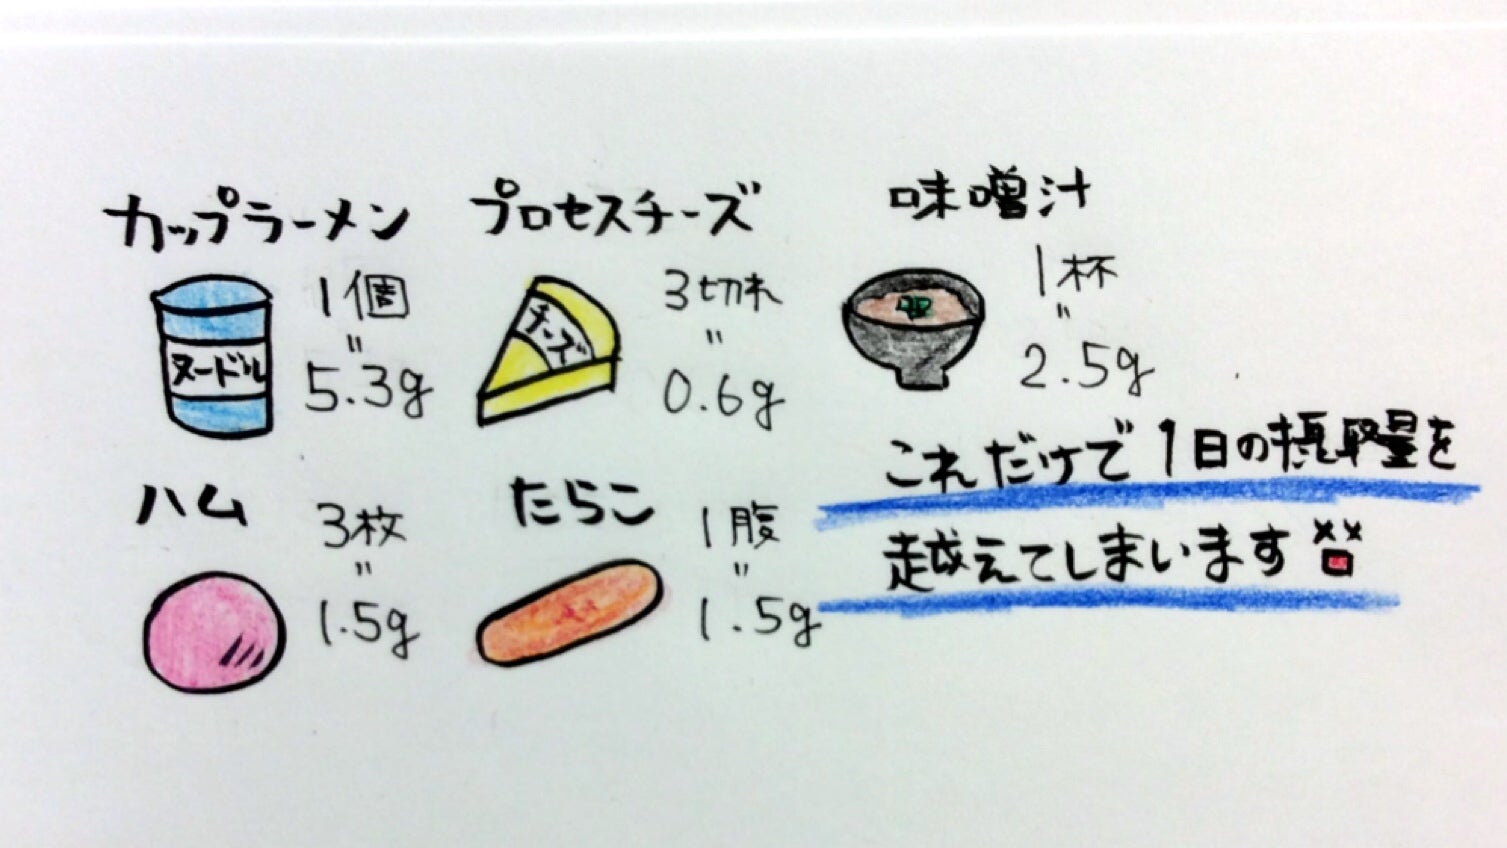 カップラーメン
ヌードル
1個
〃
5.3g
プロセスチーズ
チーズ
3切れ
〃
0.6g
味噌汁
1杯
〃
2.5g
ハム
3枚
〃
1.5g
たらこ
1腹
〃
1.5g
これだけで1日の摂取量を
越えてしまいます